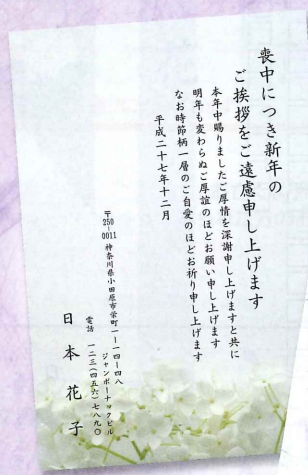 喪中につき新年の
ご挨拶をご遠慮申し上げます
本年中賜りましたご厚情を深謝申し上げますと共に
明年も変わらぬご厚誼のほどお願い申し上げます
なお時節柄一層のご自愛のほどお祈り申し上げます
平成二十七年十二月
〒250-0011 神奈川県小田原市栄町一ー一四ー四八
ジャンボーナックビル
電話 一二三(四五六)七八九〇
日本花子